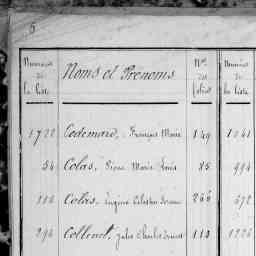 5
Numéros de la liste Noms et Prénoms Nos des folios Numéros de la liste
1722 Codemard, François Marie 149 1041
54 Colas, Pierre Marie Louis 85 994
116 Colas, Eugène Célestin 266 672
296 Collinet, Jules Charles 113 1226